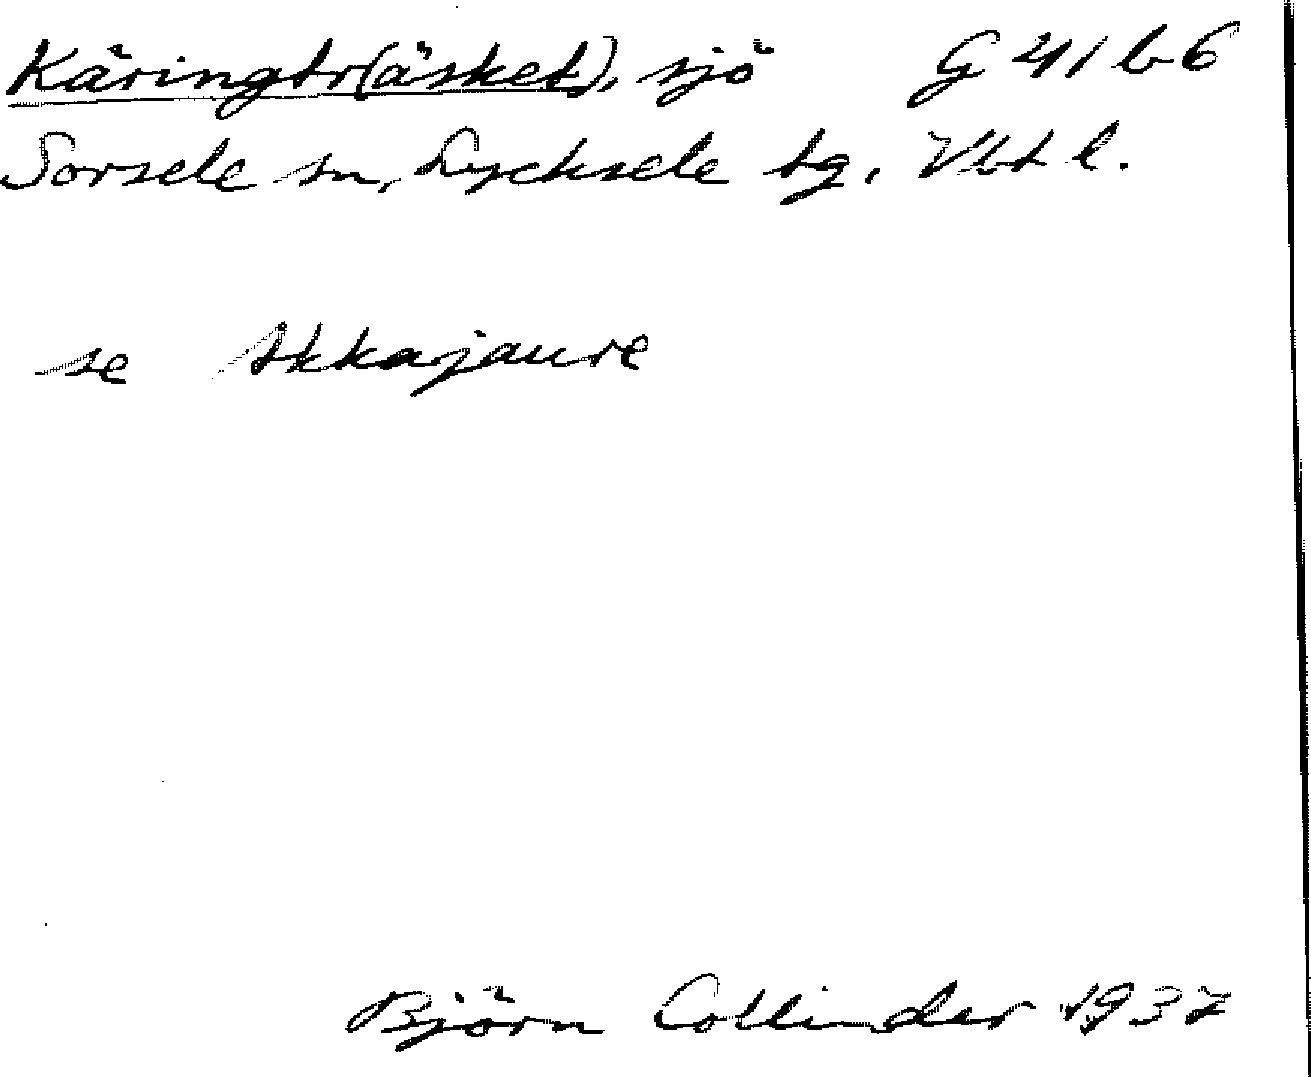 Käringtr(äsket), sjö G 41 b 6
Sorsele sn, Lycksele tg. Vbt l.
se Akkajaure
Björn Collinder 1937